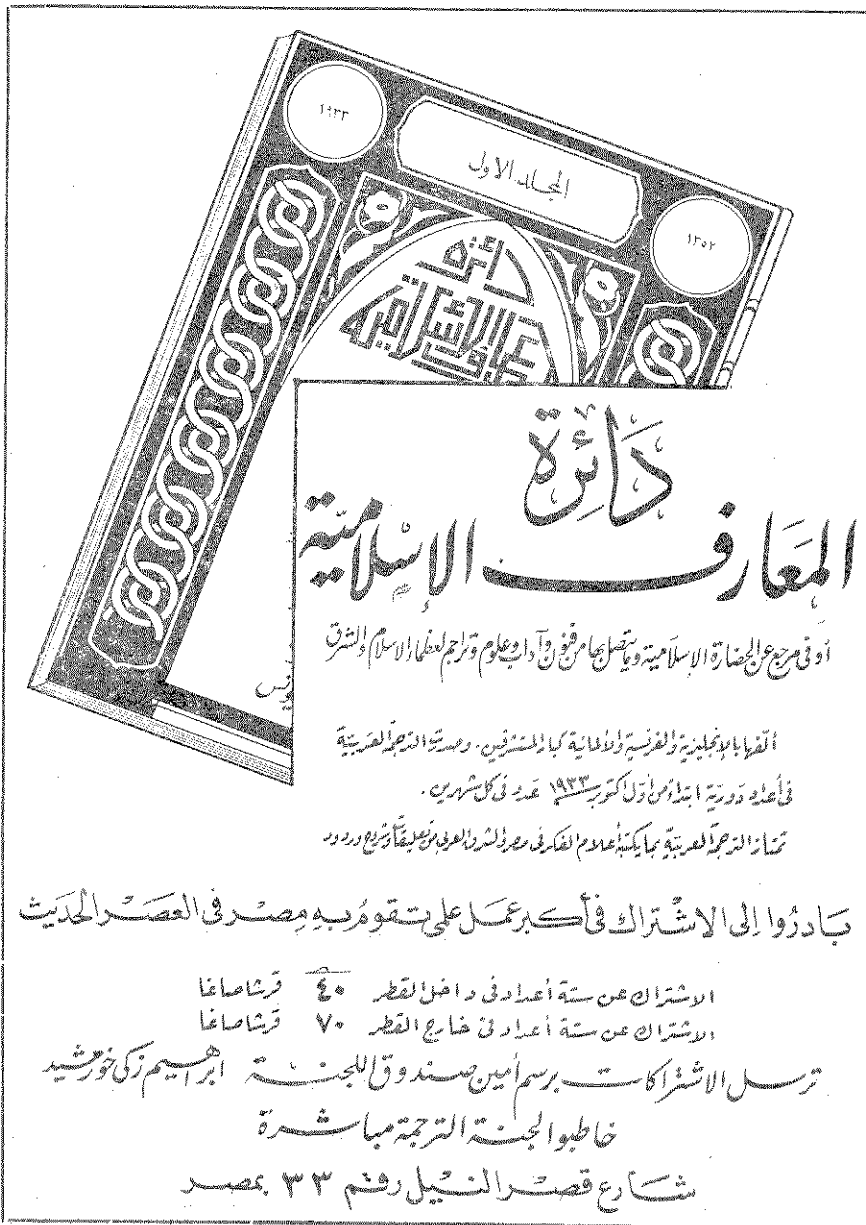 ١٩٣٣
المجلد الاول
١٣٥٢
دائرة
المعارف الإسلامية
دَائِرة
المعَارف الإسْلاميّة
أوفى مرجع عن الحضارة الإسلامية وما يتصل بها من فنون وآداب وعلوم وتراجم لعظماء الإسلام والشرق
ألفها بالإنجليزية والفرنسية والألمانية كبار المستشرقين . وصدرت الترجمة العربية
فى أعداد دورية ابتداء من أول أكتوبر ١٩٣٣ عدد فى كل شهرين .
تمتاز الترجمة العربية بما يكتبه أعلام الفكر فى مصر والشرق العربى من تعليقات وشروح وردود
بَادرُوا إلى الاشْتراك فى أكبر عمَل علمى تقومُ به مِصْر فى العصْر الحديث
الاشتراك عن ستة أعداد فى داخل القطر ٤٠ قرشا صاغا
الاشتراك عن ستة أعداد فى خارج القطر ٧٠ قرشا صاغا
ترسل الاشتراكات برسم أمين صندوق اللجنة ابراهيم زكى خورشيد
خاطبوا لجنة الترجمة مباشرة
شارع قصر النيل رقم ٣٣ بمصر